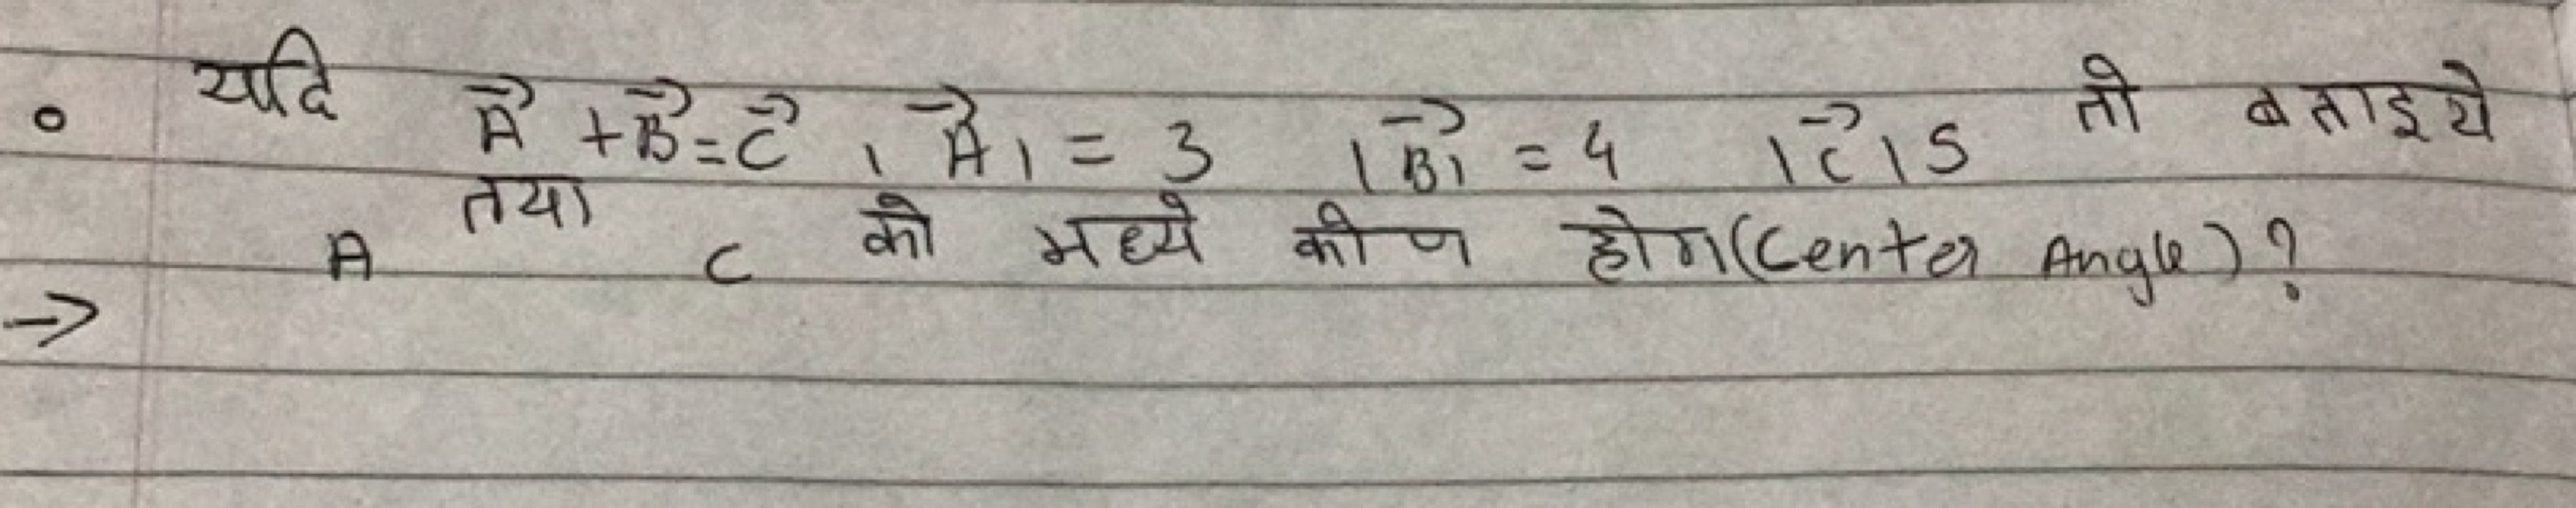 • यदि A⃗ + B⃗ = C⃗ , |A⃗| = 3 |B⃗| = 4 |C⃗| 5 तो बताइये
A तया C को मध्ये कोण होग (Center Angle) ?
→